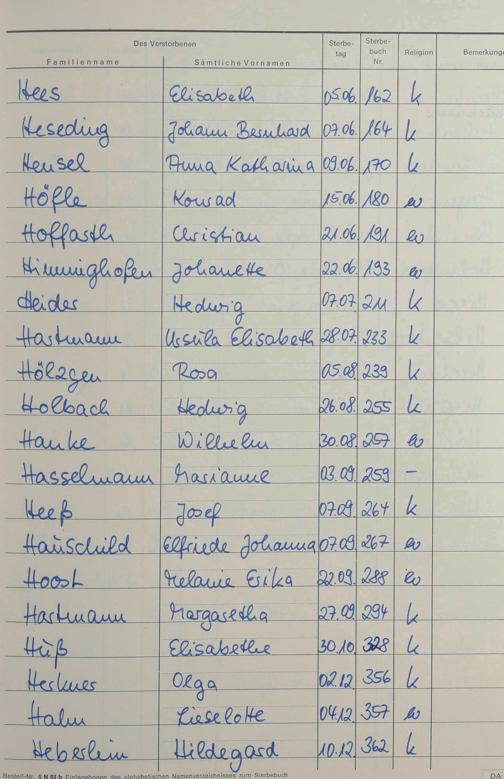 Des Verstorbenen Sterbe- Sterbe- Religion Bemerkunge
Familienname Sämtliche Vornamen tag buch Nr.
Hees Elisabeth 05.06. 162 k
Heseding Johann Bernhard 07.06. 164 k
Hensel Anna Katharina 09.06. 170 k
Höfle Konrad 15.06. 180 ev
Hoffarth Christian 21.06. 191 ev
Himmighofen Johanette 22.06. 193 ev
Heider Hedwig 07.07 211 k
Hartmann Ursula Elisabeth 28.07. 233 k
Hölzgen Rosa 05.08. 239 k
Holbach Hedwig 26.08. 255 k
Hanke Wilhelm 30.08. 257 ev
Hasselmann Marianne 03.09. 259 –
Heeß Josef 07.09. 264 k
Hauschild Elfriede Johanna 07.09. 267 ev
Hoost Melanie Erika 22.09. 288 ev
Hartmann Margaretha 27.09. 294 k
Hüß Elisabethe 30.10. 328 k
Herkner Olga 02.12. 356 k
Hahn Lieselotte 04.12. 357 ev
Heberlein Hildegard 10.12. 362 k
Bestell-Nr. S N 03 b Einlagebogen des alphabetischen Namenverzeichnisses zum Sterbebuch DA